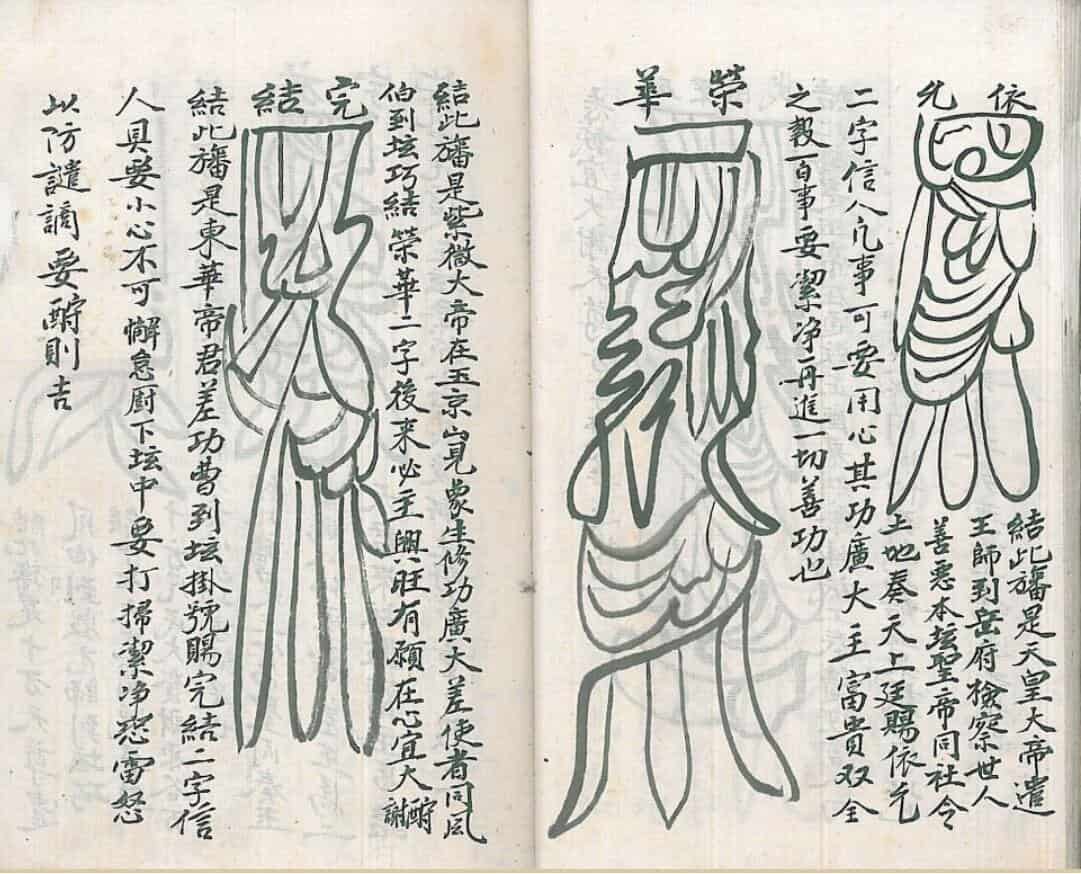 依允
結此旛是天皇大帝遣
王師到岳府檢察世人
善惡本坛聖帝同社令
土地奏天上廷賜依允
二字信人凢事可要用心其功廣大主富貴双全
之穀百事要潔净再進一切善功也
榮華
結此旛是紫微大帝在玉京山見象生修功廣大差使者同風
伯到坛巧結榮華二字後来必主興旺有願在心宜大酧謝
完結
結此旛是東華帝君差功曹到坛掛號賜完結二字信
人具要小心不可懈怠厨下坛中要打掃潔净恐雷怒
以防譴謫要酧則吉